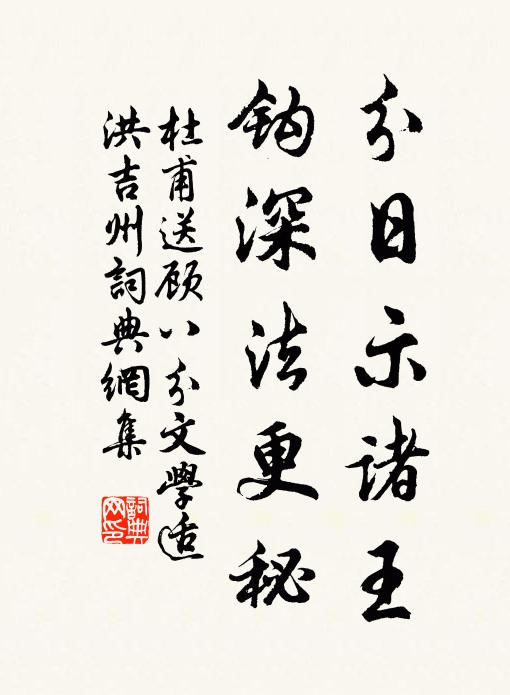 分日示諸王
鈎深法更秘
杜甫送顧八分文學适
洪吉州詞典網集
詞典
网印